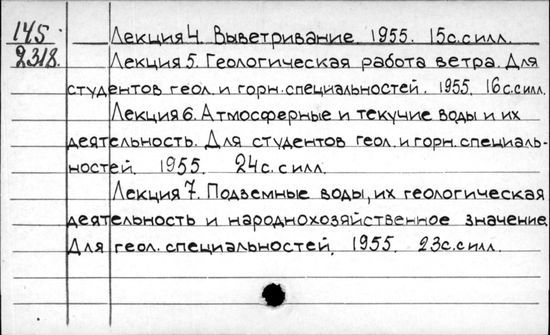 145 Лекция 4. Выветривание. 1955. 15с.с илл.
2318. Лекция 5. Геологическая работа ветра. Для
студентов геол. и горн. специальностей. 1955. 16с.с илл.
Лекция 6. Атмосферные и текучие воды и их
деятельность. Для студентов геол. и горн. специаль-
ностей. 1955. 24с. с илл.
Лекция 7. Подземные воды, их геологическая
деятельность и народнохозяйственное значение.
Для геол. специальностей, 1955. 23с.с илл.